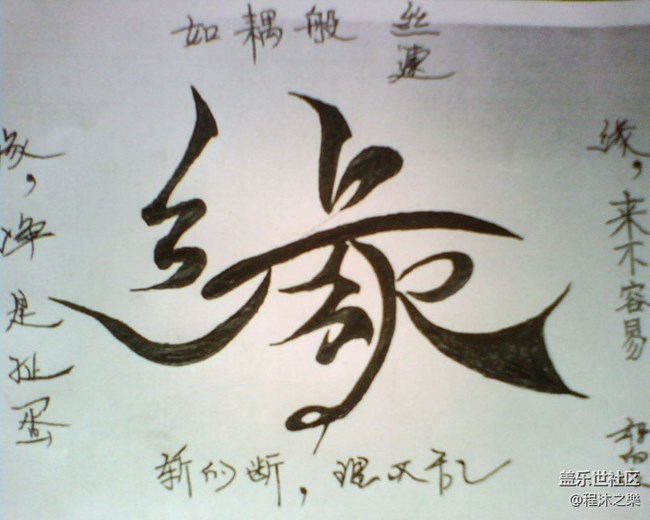 如耦般 丝连
缘，来不容易
缘
缘，净是扯蛋
新的断，理又乱
盖乐世社区
@程沐之樂